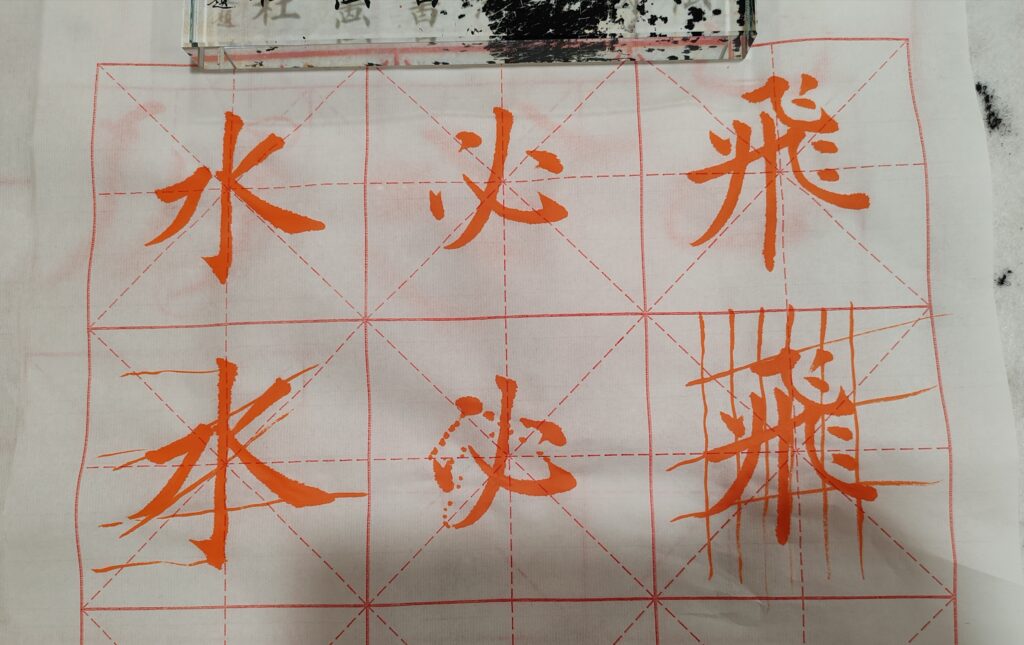 水必飛
水必飛